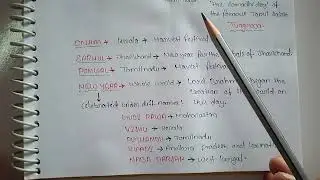 "The samadhi day" of
the famous Tamil Saint
ONAM → Kerala → Harvest Festival
SARHUL → Jharkhand → New year for the tribals of Jharkhand
PONGAL → Tamilnadu → Harvest Festival
NEW YEAR → whole world → Lord Brahma began the
creation of the world on
this day.
Celebrated with diff. names
GUDI PADVA → Maharashtra
VISHU → Kerala
PUTHANDU → Tamilnadu
UGADI → Andhra Pradesh and Karnataka
NABA BARSHA → West Bengal